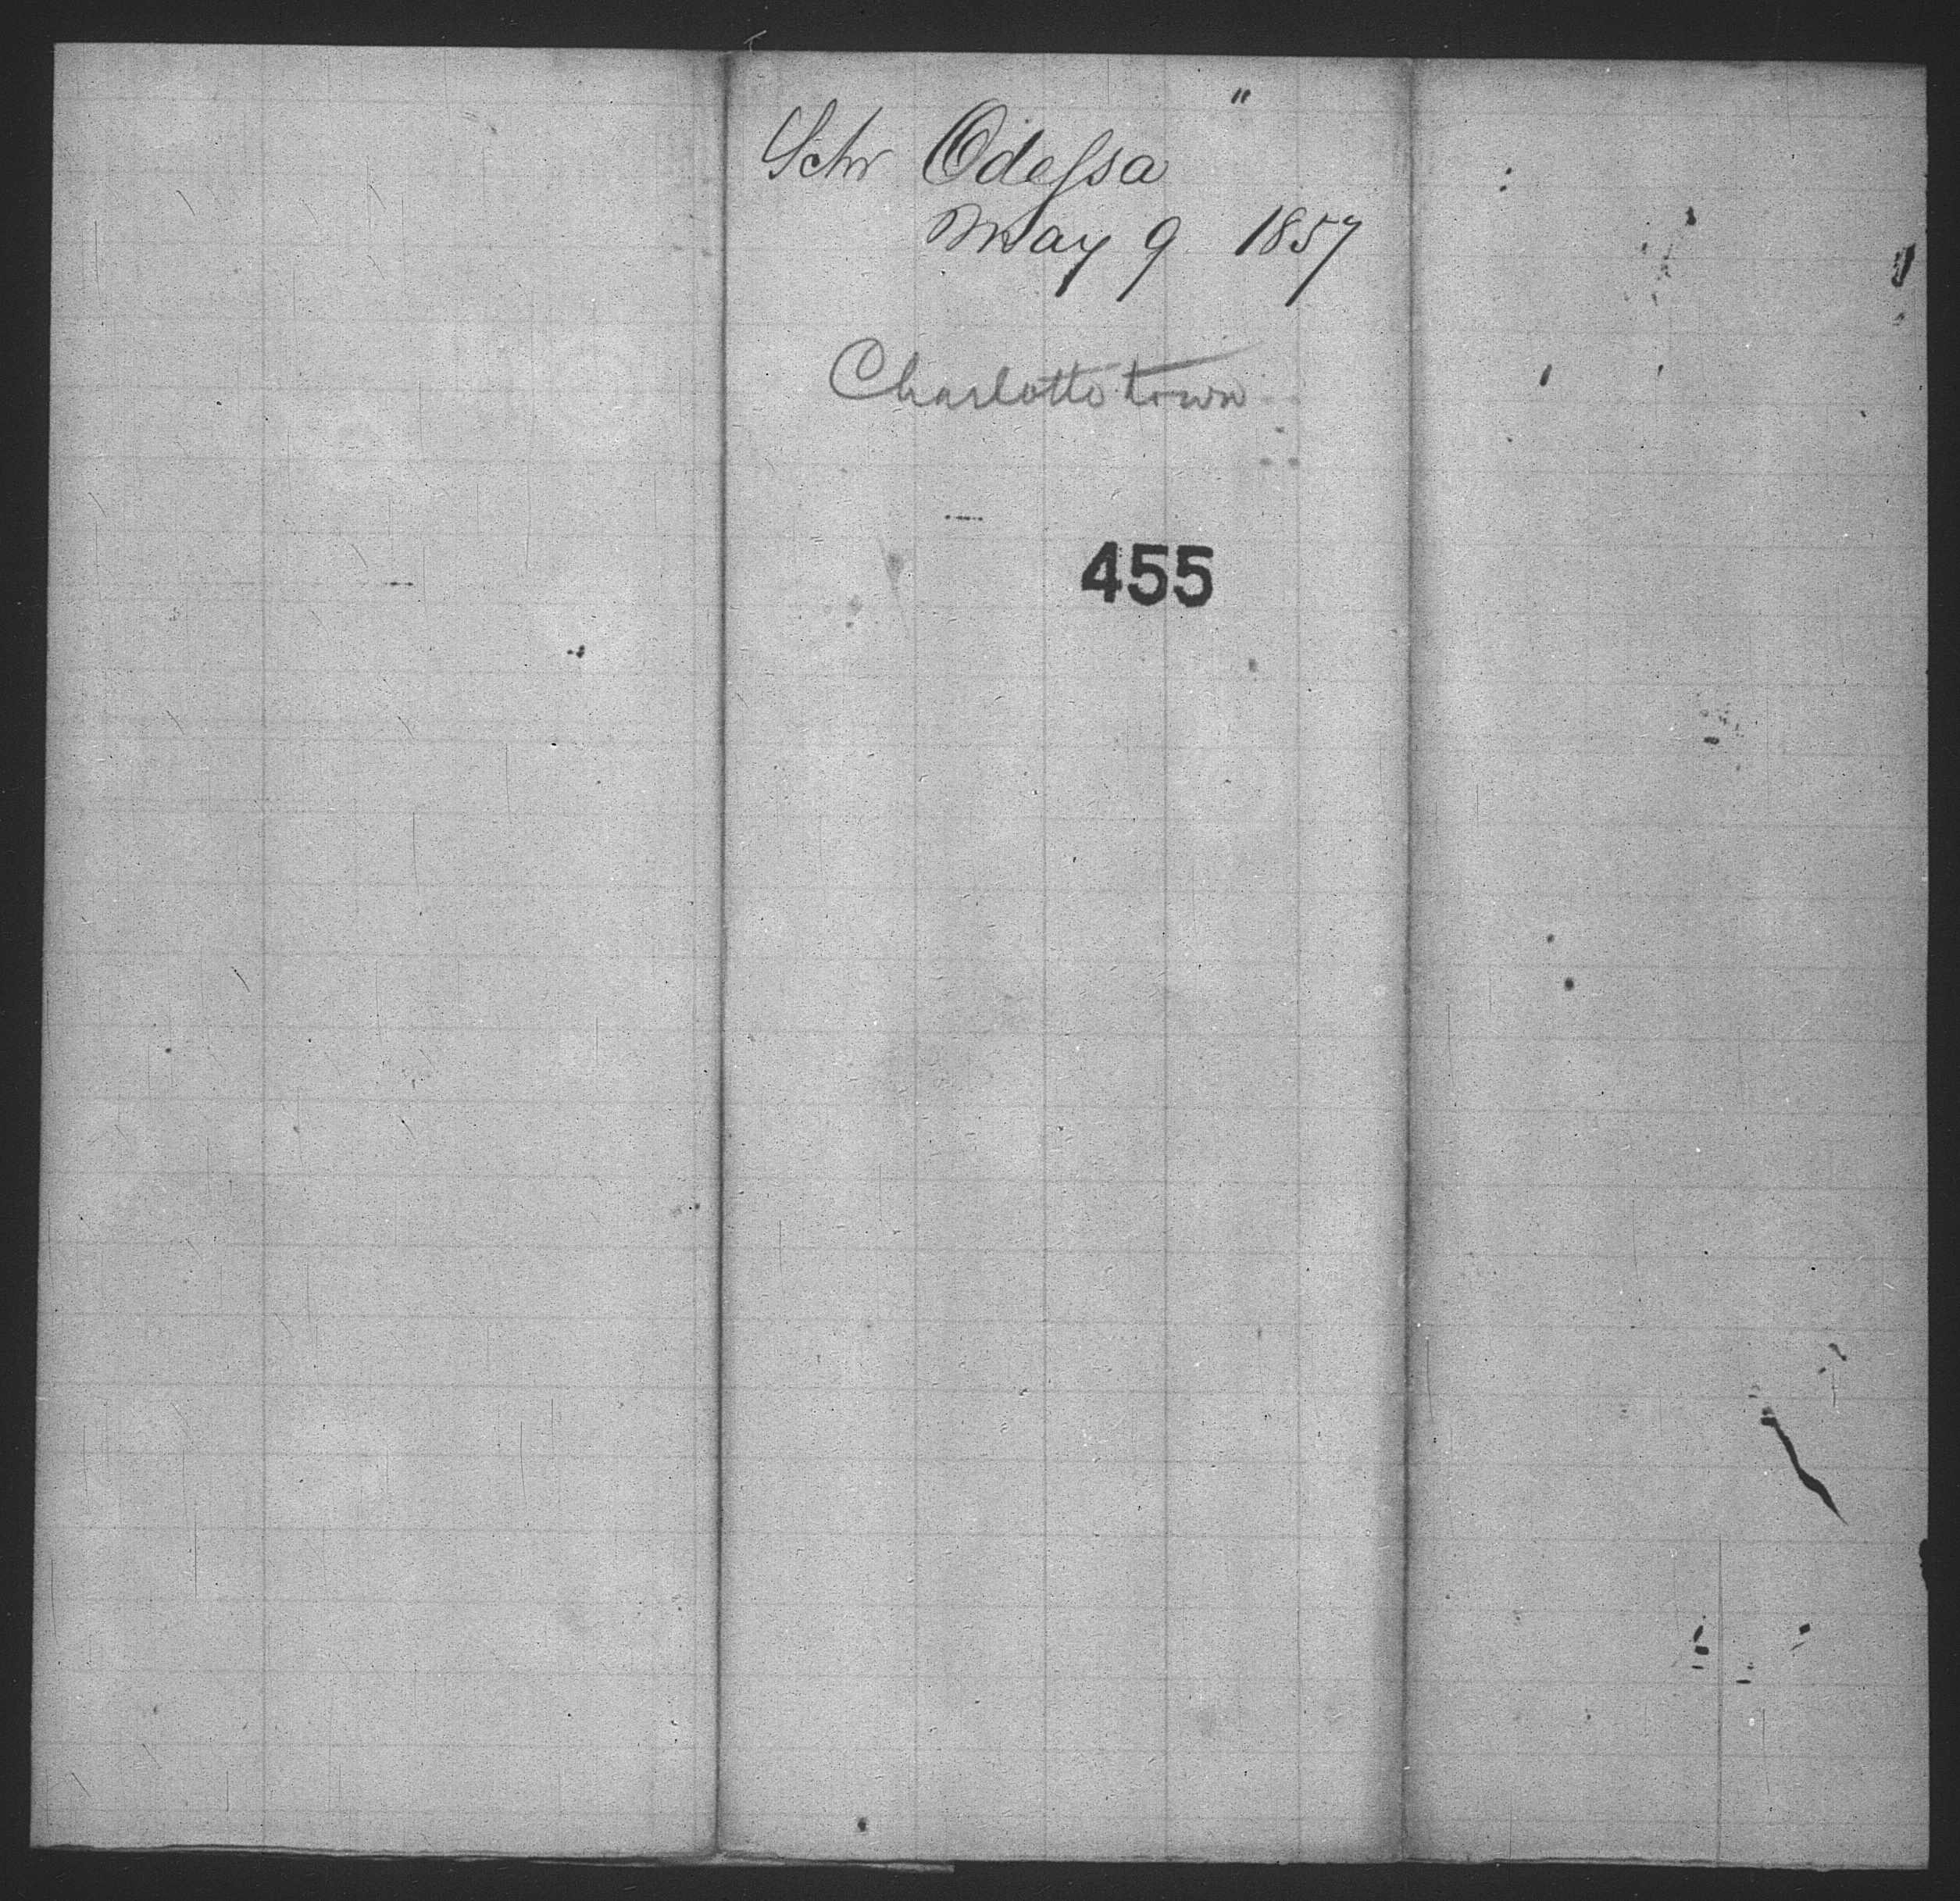 Schr Odeſsa "
May 9 1857
Charlottetown
455